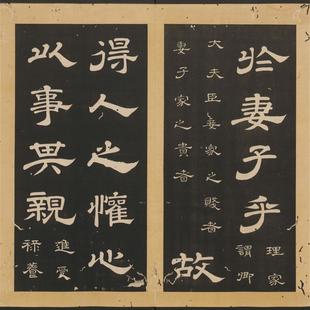 於妻子乎
理家
謂卿
大夫臣妾家之賤者
妻子家之貴者
故
得人之懽心
以事其親
進受
祿養